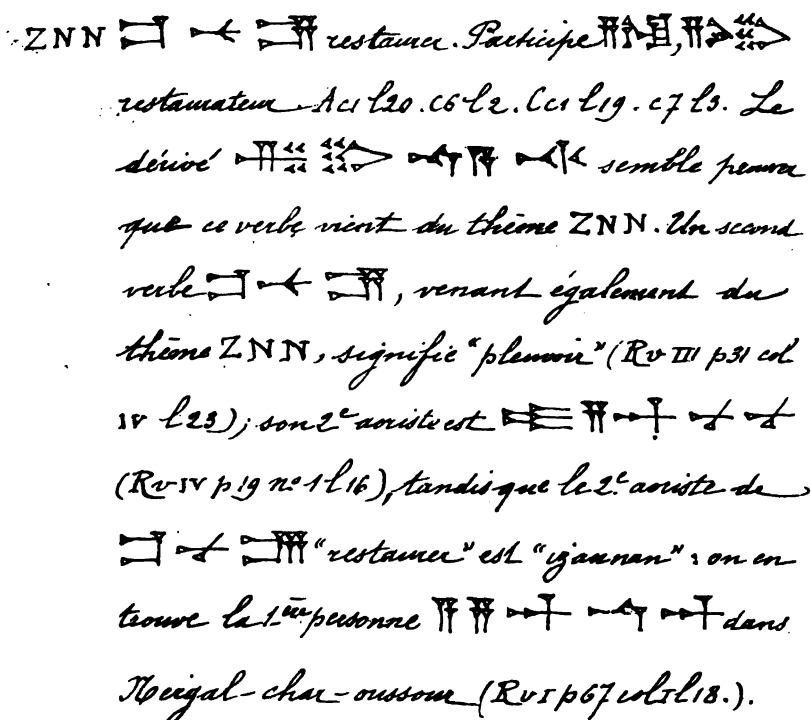 ZNN restaurer. Participe ,
restaurateur Ac1 l20. C6 l2. Cc1 l19. c7 l3. Le
dérivé semble prouver
que ce verbe vient du thème ZNN. Un second
verbe , venant également du
thème ZNN, signifie "pleuvoir" (Rw III p31 col
IV l23); son 2e aoriste est
(Rw IV p19 no 1 l16), tandis que le 2e aoriste de
"restaurer" est "izannan": on en
trouve la 1ère personne dans
Nergal-char-oussour (Rw I p67 col I l18.).